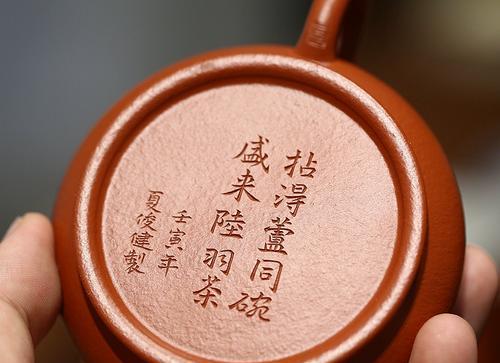 拈淂蘆同碗
盛来陸羽茶
壬寅年
夏俊健製